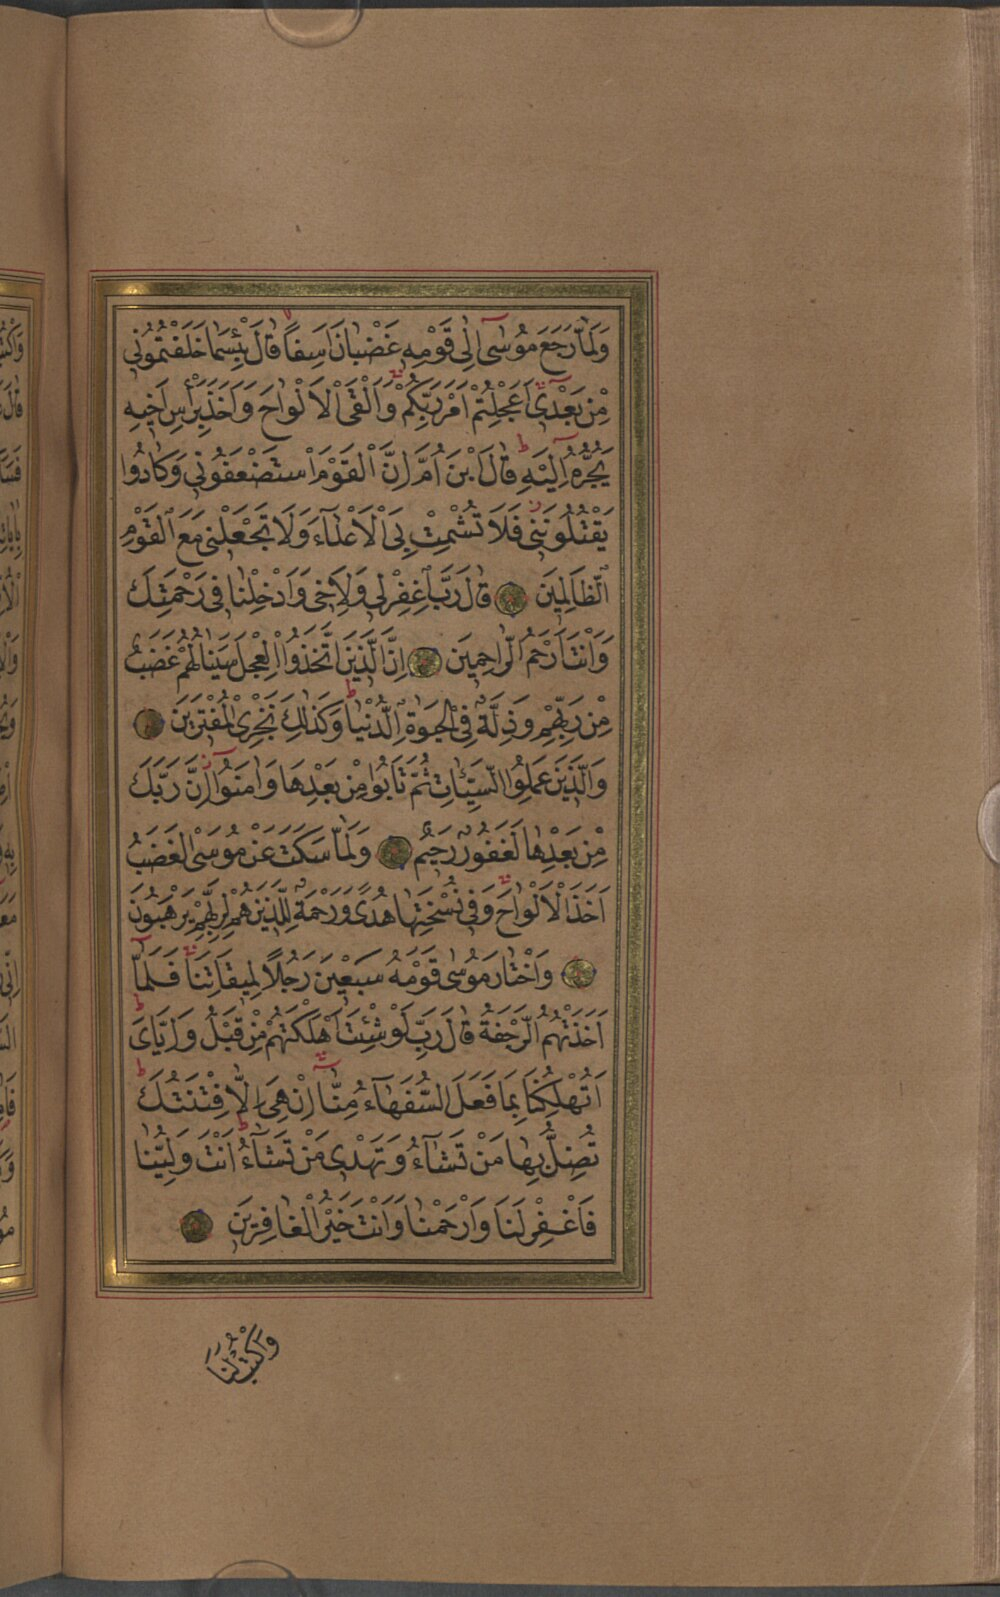 وَلَمَّا رَجَعَ مُوسٰٓى اِلٰى قَوْمِهٖ غَضْبَانَ اَسِفًا قَالَ بِئْسَمَا خَلَفْتُمُونٖى
مِنْ بَعْدٖىٓ اَعَجِلْتُمْ اَمْرَ رَبِّكُمْ وَاَلْقَى الْاَلْوَاحَ وَاَخَذَ بِرَأْسِ اَخٖيهِ
يَجُرُّهُٓ اِلَيْهِ قَالَ ابْنَ اُمَّ اِنَّ الْقَوْمَ اسْتَضْعَفُونٖى وَكَادُوا
يَقْتُلُونَنٖى فَلَا تُشْمِتْ بِىَ الْاَعْدَٓاءَ وَلَا تَجْعَلْنٖى مَعَ الْقَوْمِ
الظَّالِمٖينَ قَالَ رَبِّ اغْفِرْ لٖى وَلِاَخٖى وَاَدْخِلْنَا فٖى رَحْمَتِكَ
وَاَنْتَ اَرْحَمُ الرَّاحِمٖينَ اِنَّ الَّذٖينَ اتَّخَذُوا الْعِجْلَ سَيَنَالُهُمْ غَضَبٌ
مِنْ رَبِّهِمْ وَذِلَّةٌ فِى الْحَيٰوةِ الدُّنْيَا وَكَذٰلِكَ نَجْزِى الْمُفْتَرٖينَ
وَالَّذٖينَ عَمِلُوا السَّيِّـَٔاتِ ثُمَّ تَابُوا مِنْ بَعْدِهَا وَاٰمَنُٓوا اِنَّ رَبَّكَ
مِنْ بَعْدِهَا لَغَفُورٌ رَحٖيمٌ وَلَمَّا سَكَتَ عَنْ مُوسَى الْغَضَبُ
اَخَذَ الْاَلْوَاحَ وَفٖى نُسْخَتِهَا هُدًى وَرَحْمَةٌ لِلَّذٖينَ هُمْ لِرَبِّهِمْ يَرْهَبُونَ
وَاخْتَارَ مُوسٰى قَوْمَهُ سَبْعٖينَ رَجُلًا لِمٖيقَاتِنَا فَلَمَّٓا
اَخَذَتْهُمُ الرَّجْفَةُ قَالَ رَبِّ لَوْ شِئْتَ اَهْلَكْتَهُمْ مِنْ قَبْلُ وَاِيَّاىَ
اَتُهْلِكُنَا بِمَا فَعَلَ السُّفَهَٓاءُ مِنَّٓا اِنْ هِىَ اِلَّا فِتْنَتُكَ
تُضِلُّ بِهَا مَنْ تَشَٓاءُ وَتَهْدٖى مَنْ تَشَٓاءُ اَنْتَ وَلِيُّنَا
فَاغْفِرْ لَنَا وَارْحَمْنَا وَاَنْتَ خَيْرُ الْغَافِرٖينَ
وَاكْتُبْ لَنَا